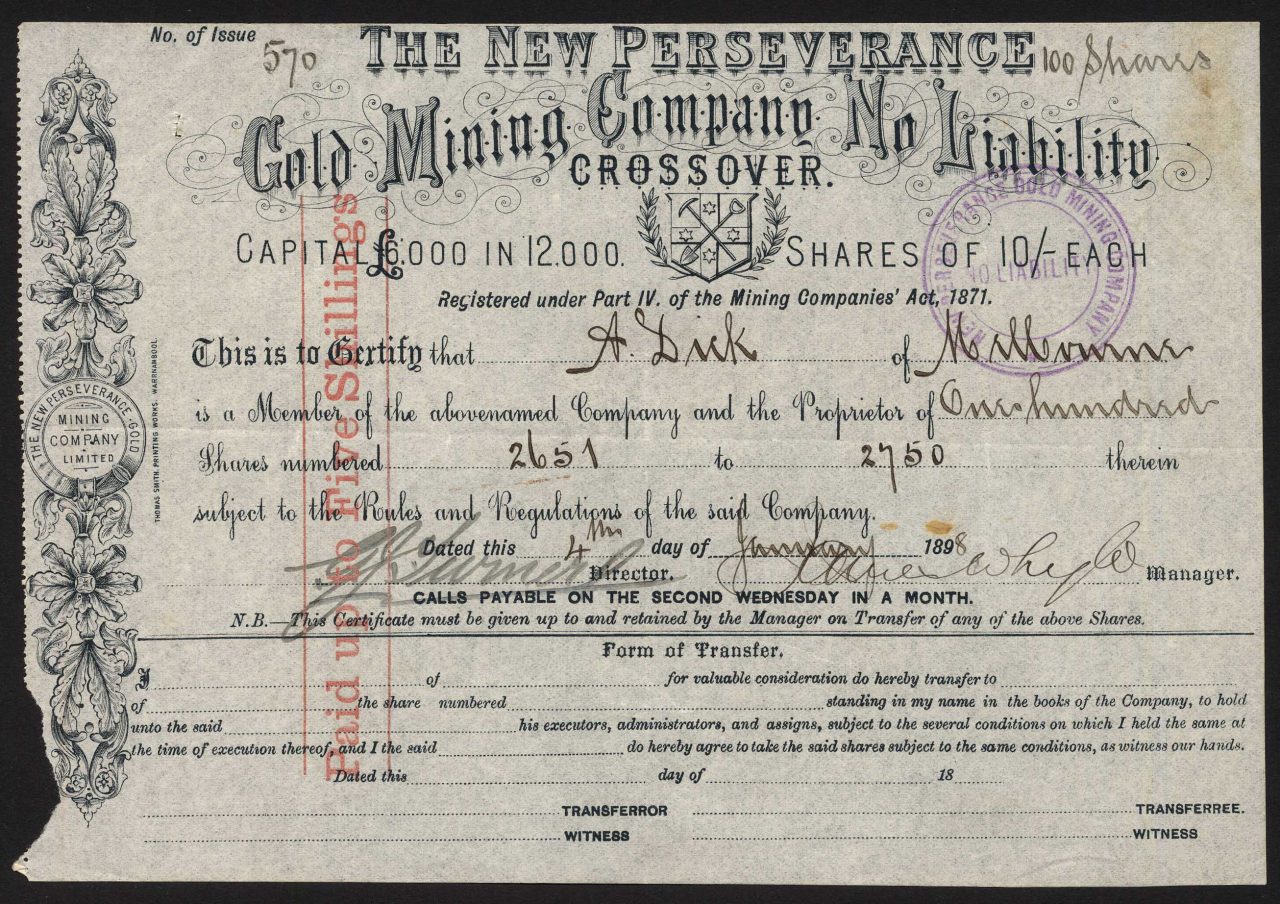 No. of Issue 570 THE NEW PERSEVERANCE 100 Shares
Gold Mining Company No Liability
CROSSOVER.
CAPITAL £6,000 IN 12,000. SHARES OF 10/- EACH
Registered under Part IV. of the Mining Companies' Act, 1871.
This is to Certify that A. Dick of Melbourne
is a Member of the abovenamed Company and the Proprietor of One hundred
Shares numbered 2651 to 2750 therein
subject to the Rules and Regulations of the said Company.
Dated this 4th day of January 1898
Director. Manager.
CALLS PAYABLE ON THE SECOND WEDNESDAY IN A MONTH.
N.B.—This Certificate must be given up to and retained by the Manager on Transfer of any of the above Shares.
Form of Transfer.
I of for valuable consideration do hereby transfer to
of the share numbered standing in my name in the books of the Company, to hold
unto the said his executors, administrators, and assigns, subject to the several conditions on which I held the same at
the time of execution thereof, and I the said do hereby agree to take the said shares subject to the same conditions, as witness our hands.
Dated this day of 18
TRANSFERROR TRANSFERREE.
WITNESS WITNESS
Paid up to Five Shillings
THE NEW PERSEVERANCE GOLD
MINING
COMPANY
LIMITED
THOMAS SMITH, PRINTING WORKS, WARRNAMBOOL
NEW PERSEVERANCE GOLD MINING COMPANY
NO LIABILITY